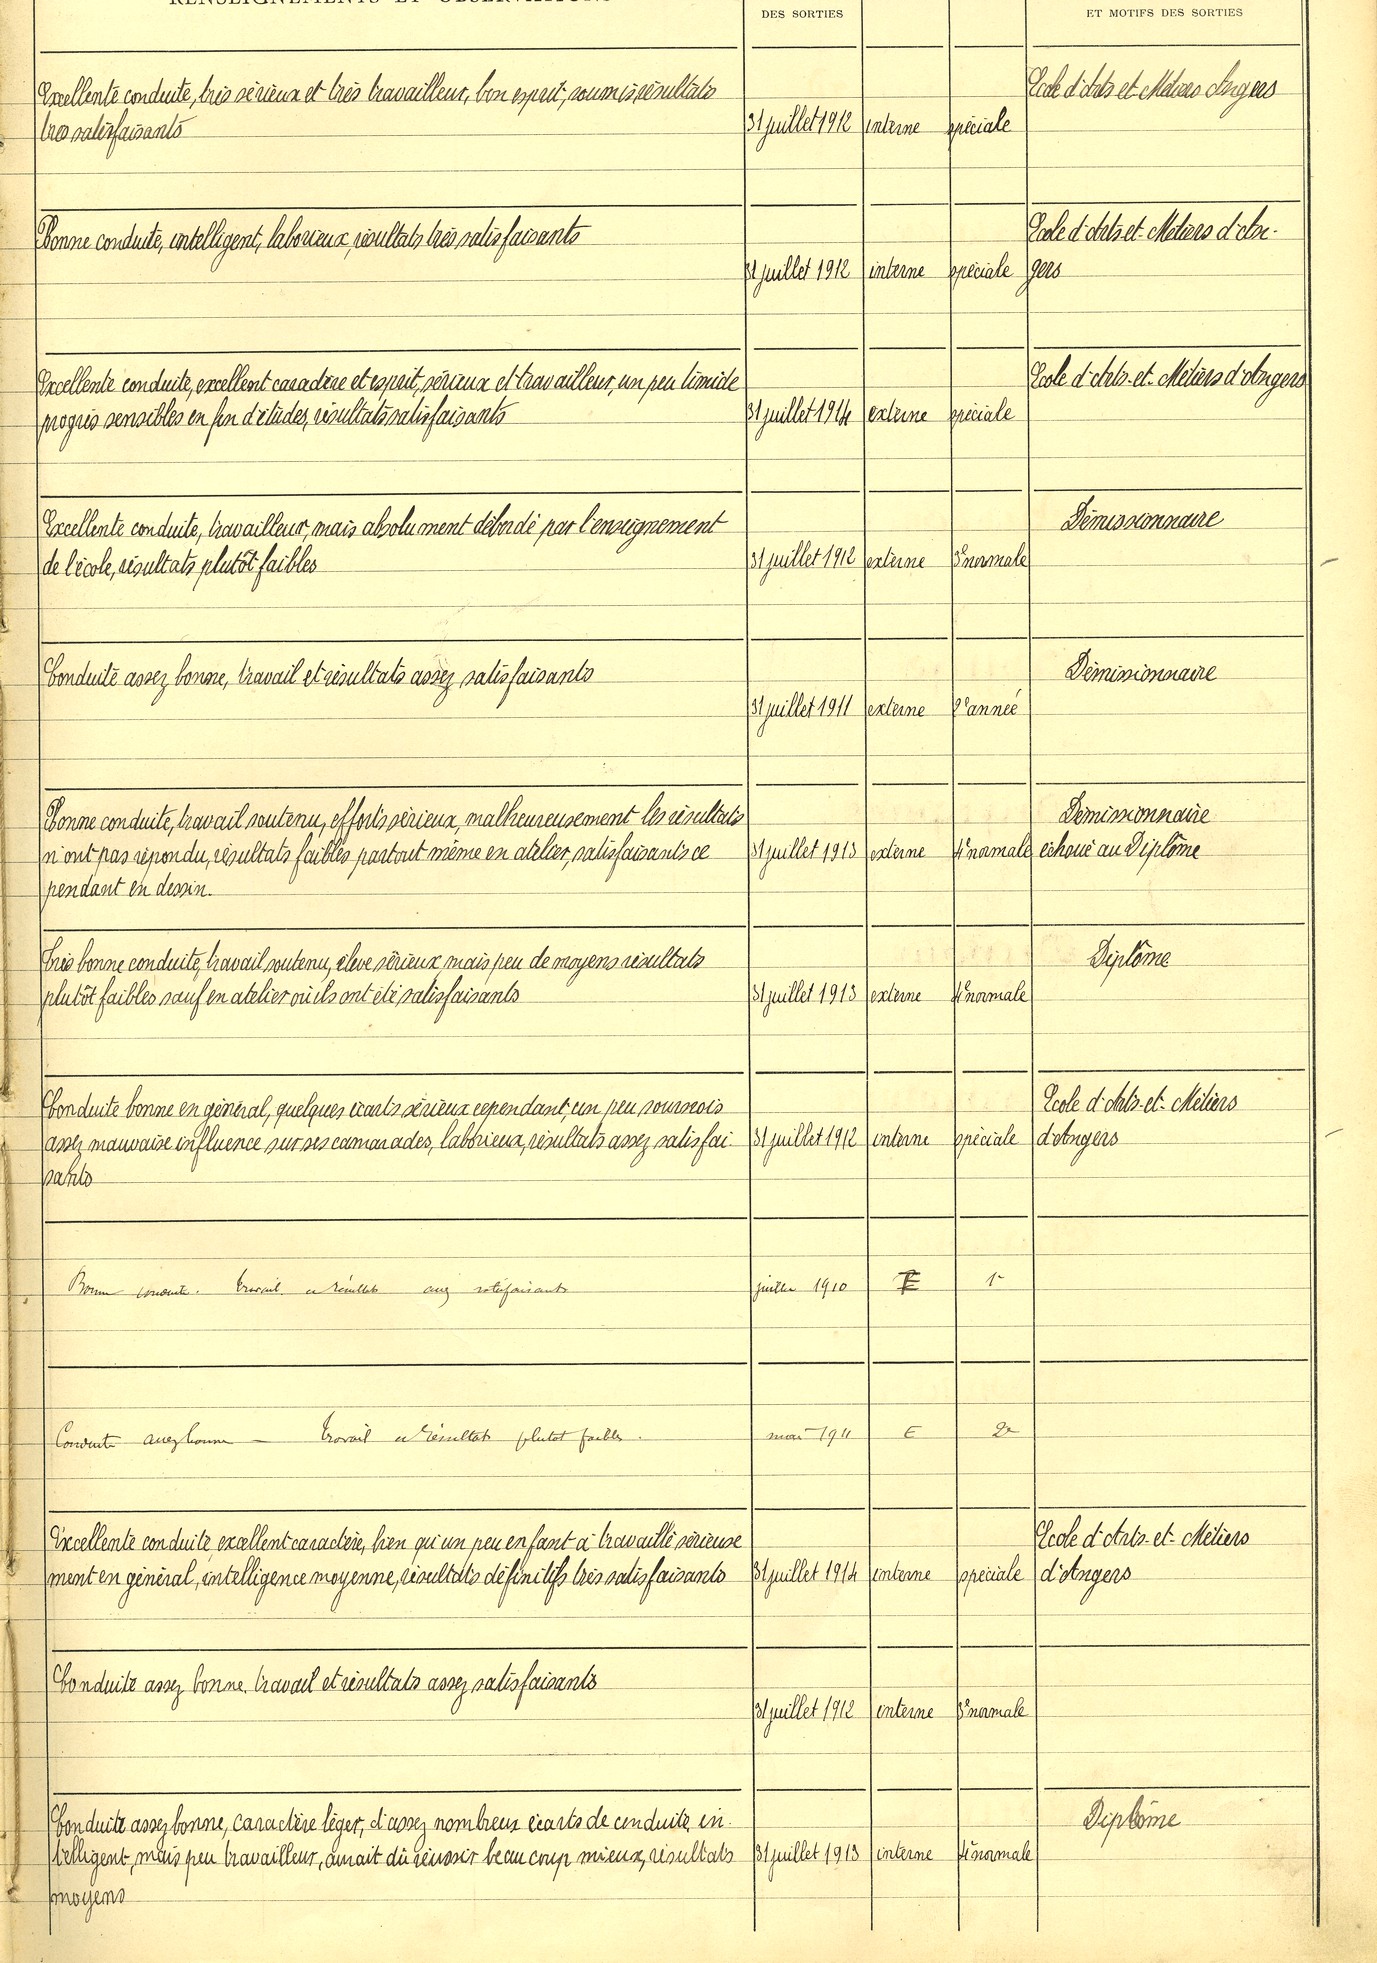 RENSEIGNEMENTS ET OBSERVATIONS
DES SORTIES
ET MOTIFS DES SORTIES
Excellente conduite, très sérieux et très travailleur, bon esprit, soumis, résultats
très satisfaisants
31 juillet 1912 interne spéciale
Ecole d'Arts et Métiers Angers
Bonne conduite, intelligent, laborieux, résultats très satisfaisants
31 juillet 1912 interne spéciale
Ecole d'Arts-et-Métiers d'An-
gers
Excellente conduite, excellent caractère et esprit, sérieux et travailleur, un peu timide
progrès sensibles en fin d'études, résultats satisfaisants
31 juillet 1914 externe spéciale
Ecole d'Arts-et-Métiers d'Angers
Excellente conduite, travailleur, mais absolument débordé par l'enseignement
de l'école, résultats plutôt faibles
31 juillet 1912 externe 3e normale
Démissionnaire
Conduite assez bonne, travail et résultats assez satisfaisants
31 juillet 1911 externe 2e année
Démissionnaire
Bonne conduite, travail soutenu, efforts sérieux, malheureusement les résultats
n'ont pas répondu, résultats faibles partout même en atelier, satisfaisants ce
pendant en dessin.
31 juillet 1913 externe 4e normale
Démissionnaire
échoué au Diplôme
Très bonne conduite, travail soutenu, élève sérieux mais peu de moyens résultats
plutôt faibles sauf en atelier où ils ont été satisfaisants
31 juillet 1913 externe 4e normale
Diplôme
Conduite bonne en général, quelques écarts sérieux cependant, un peu sournois
assez mauvaise influence sur ses camarades, laborieux, résultats assez satisfai-
sants
31 juillet 1912 interne spéciale
Ecole d'Arts-et-Métiers
d'Angers
Bonne conduite. Travail et résultats assez satisfaisants
juillet 1910 E 1e
Conduite assez bonne — Travail et résultats plutot faibles.
1911 E 2e
Excellente conduite, excellent caractère, bien qu'un peu enfant à travaillé sérieuse
ment en général, intelligence moyenne, résultats définitifs très satisfaisants
31 juillet 1914 interne spéciale
Ecole d'Arts-et-Métiers
d'Angers
Conduite assez bonne, travail et résultats assez satisfaisants
31 juillet 1912 interne 3e normale
Conduite assez bonne, caractère léger, d'assez nombreux écarts de conduite, in-
telligent, mais peu travailleur, aurait dû réussir beaucoup mieux, résultats
moyens
31 juillet 1913 interne 4e normale
Diplôme